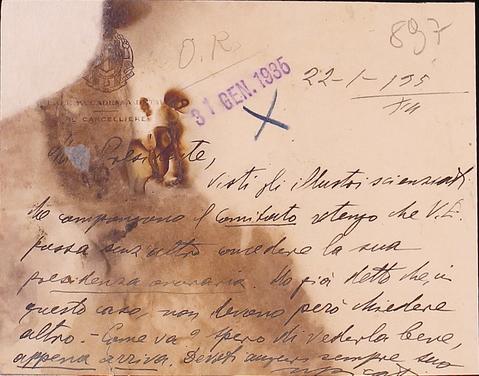 897
O.R.
31 GEN. 1935
22-1-135
XIII
REALE ACCADEMIA D'ITALIA
IL CANCELLIERE
Presidente,
Visti gli illustri scienziati
che compongono il Comitato ritengo che V.E.
possa senz'altro concedere la sua
presidenza onoraria. Ho già detto che, in
questo caso, non devono però chiedere
altro. - Come va? Spero di vederla bene,
appena arriva. Devoti auguri sempre suo